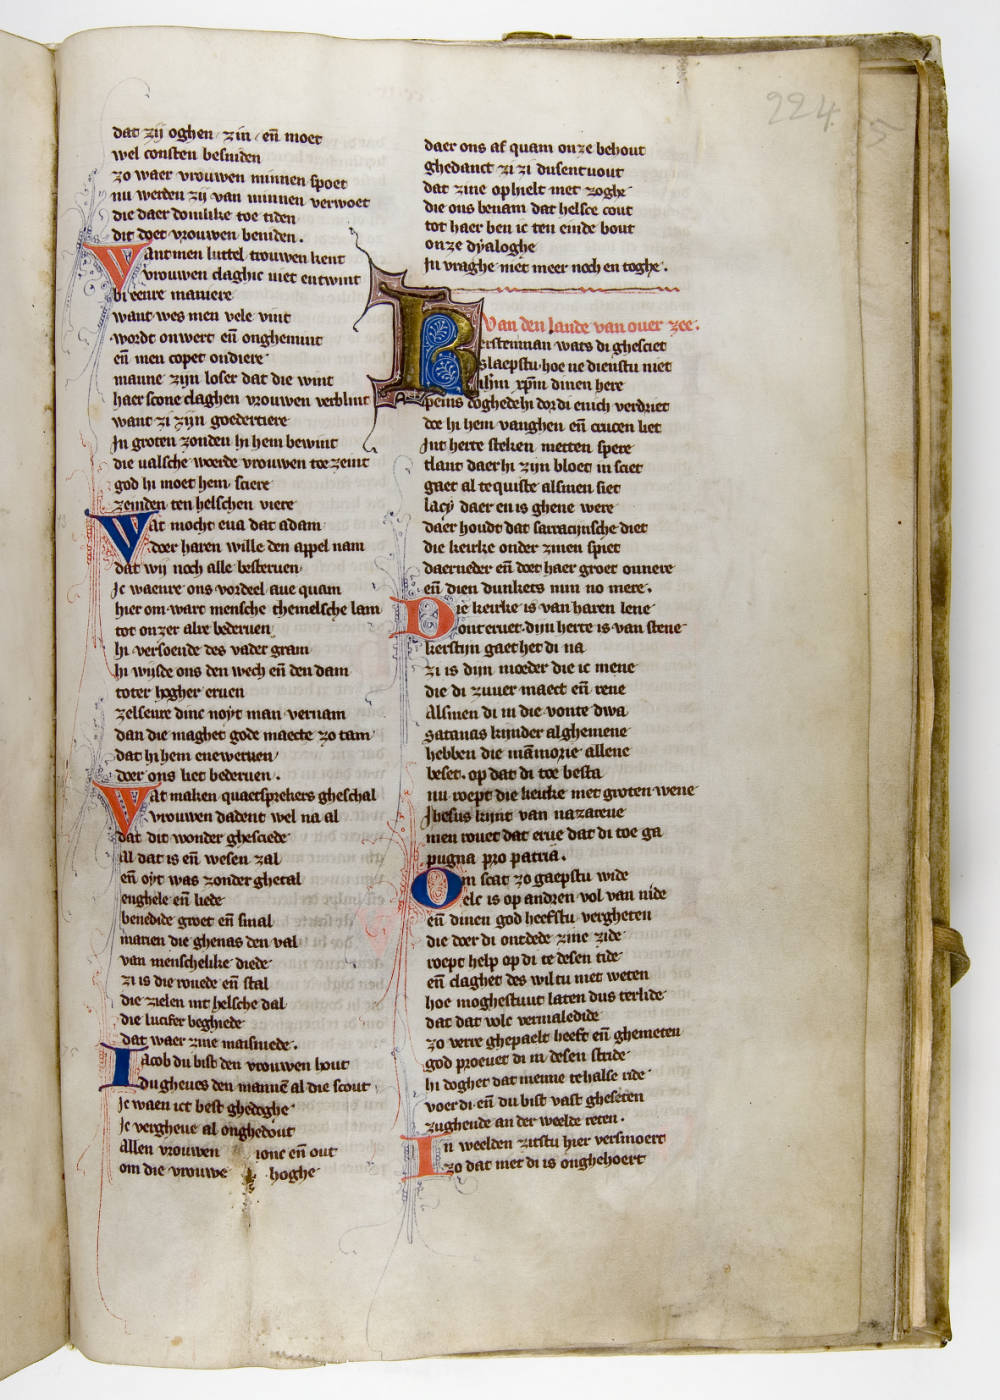 224.
5
dat zij oghen zin en̄ moet
wel consten besniden
zo waer vrouwen minnen spoet
nu werden zij van minnen verwoet
die daer domlike toe tiden
dit doet vrouwen beniden.
Want men luttel trouwen kent
vrouwen claghic niet en twint
bi eenre maniere
want wes men vele vint
wordt onwert en̄ onghemint
en̄ men copet ondiere
manne zijn loser dat die wint
haer scone claghen vrouwen verblint
want zi zijn goedertiere
In groten zonden hi hem bewint
die valsche woorde vrouwen toe zeint
god hi moet hem sciere
zeinden ten helschen viere
Wat mocht eua dat adam
doer haren wille den appel nam
dat wij noch alle besteruen
Ic waenre ons vordeel aue quam
hier om wart mensche themelsche lam
tot onzer alre bederuen
hi versoende des vader gram
hi wijsde ons den wech en̄ den dam
toter hogher eruen
zelseure dinc noyt man vernam
dan die maghet gode maecte zo tam
dat hi hem enewerven
doer ons liet bederuen.
Wat maken quaetsprekers gheschal
vrouwen dadent wel na al
dat dit wonder ghesciede
Al dat is en̄ wesen zal
en̄ oyt was zonder ghetal
enghele en̄ liede
benedide groet en̄ smal
marien die ghenas den val
van menschelike diede
zi is die rouede en̄ stal
die zielen int helsche dal
die lucifer beghiede
dat waer zine maisniede.
Iacob du bist den vrouwen hout
du gheues den mannē al die scout
Ic waen ict best ghedoghe
Ic vergheue al onghedout
allen vrouwen ionc en̄ out
om die vrouwe hoghe
daer ons af quam onze behout
ghedanct zi zi dusentuout
dat zine ophielt met zoghe
die ons benam dat helsce cout
tot haer ben ic ten einde bout
onze dyaloghe
In vraghe niet meer noch en toghe.
Van den lande van ouer zee.
Kerstenman wats di ghesciet
slaepstu hoe ne dienstu niet
ihm xpm dinen here
peins doghedehi dor di enich verdriet
doe hi hem vanghen en̄ crucen liet
Int herte steken metten spere
tlant daer hi zijn bloet in sciet
gaet al te quiste alsmen siet
lacy daer en is ghene were
daer houdt dat sarracijnsche diet
die kerke onder zinen spiet
daerneder en̄ doet haer groet onnere
en̄ dien dunkets min no mere.
Die kerke is van haren lene
onteruet dijn herte is van stene
kerstijn gaet het di na
zi is dijn moeder die ic mene
die di zuuer maect en̄ rene
Alsmen di in die vonte dwa
satanas kinder alghemene
hebben die māmorie allene
beset. op dat di toe besta
nu roept die kerke met groten wene
Ihesus kijnt van nazarene
men rouet dat erue dat di toe ga
pugna pro patria.
Om scat zo gaepstu wide
elc is op andren vol van nide
en̄ dinen god heefstu vergheten
die doer di ontdede zine zide
roept help op di te desen tide
en̄ claghet des wiltu niet weten
hoe moghestuut laten dus terlide
dat dat volc vermaledide
zo verre ghepaelt heeft en̄ ghemeten
god proeuet di in desen stride
hi doghet dat menne te halse ride
voer di en̄ du bist vast gheseten
zughende an der weelde teten.
In weelden zitstu hier versmoert
zo dat met di is onghehoert